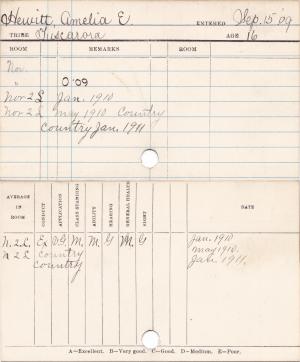 Hewitt, Amelia E. ENTERED Sep. 15 '09
TRIBE Tuscarora AGE 16
ROOM REMARKS ROOM
Nov.
" 0.09
Nor 2 L Jan. 1910
Nor 2 L May 1910 Country
Country Jan. 1911
AVERAGE IN ROOM CONDUCT APPLICATION CLASS STANDING ABILITY HEARING GENERAL HEALTH SIGHT DATE
N. 2 L. Ex V.G. M. M. G M. G Jan. 1910
N 2 L Country May 1910
Country Jan. 1911
A—Excellent. B—Very good. C—Good. D—Medium. E—Poor.